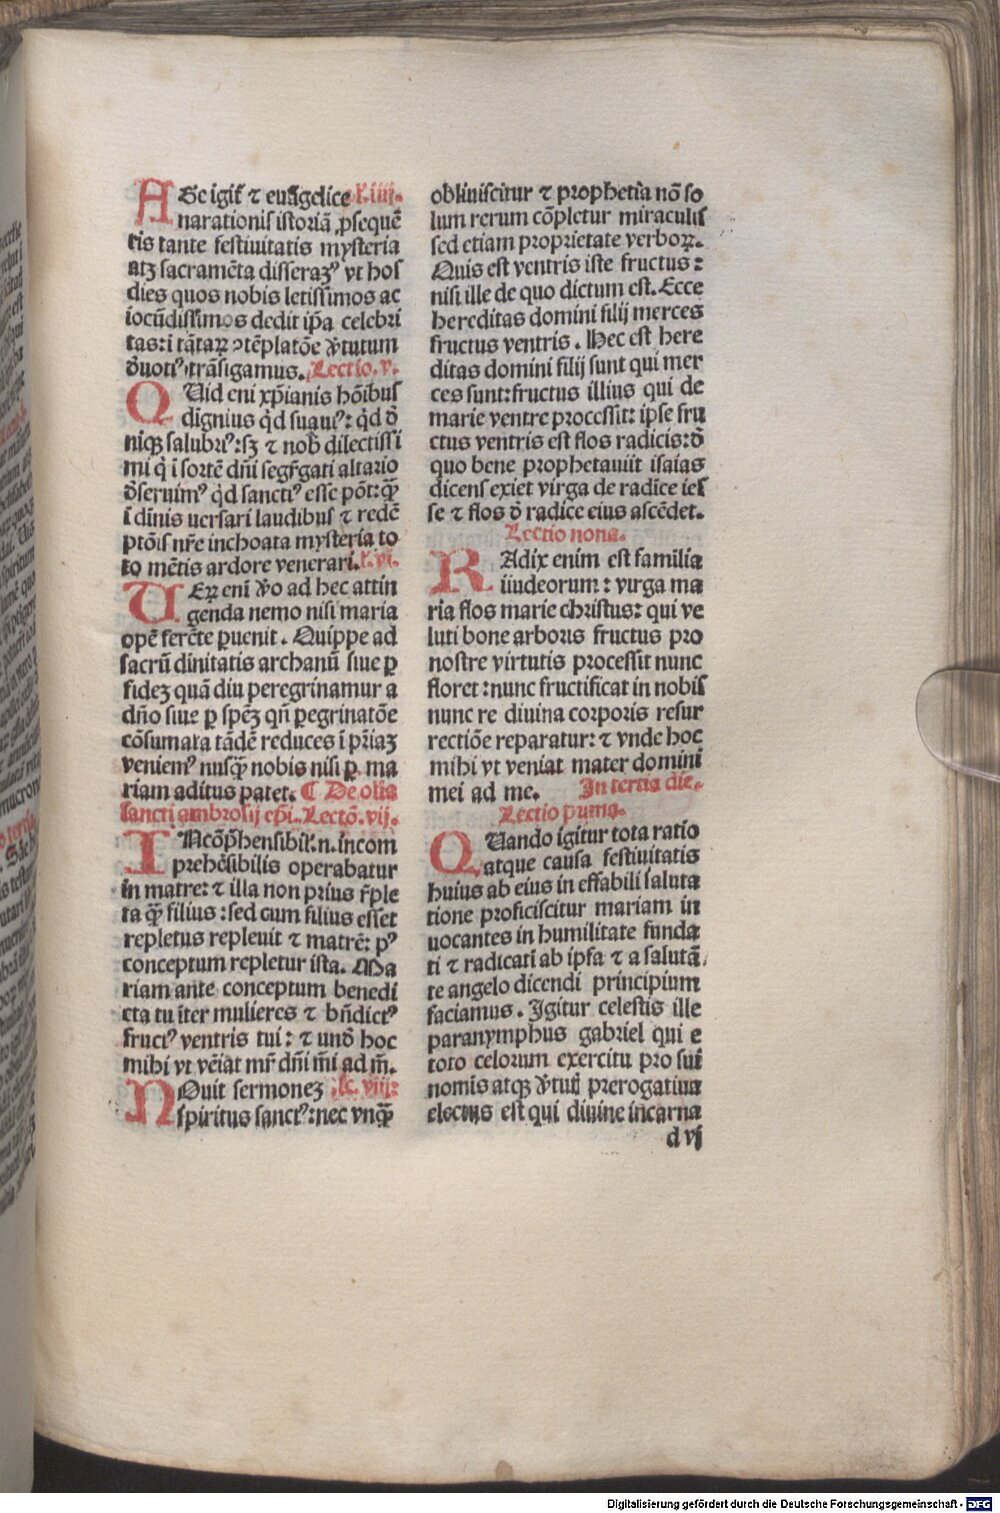 ASc igit᷑ ⁊ euãgelice l᷑.iiij.
narationis istoriã ꝓsequẽ
tis tante festiuitatis mysteria
atqꝫ sacramẽta disseraꝫꝰ vt hos
dies quos nobis letissimos ac
iocũdissimos dedit ip̃a celebri
tas: ĩ tãtaꝝ ↄtẽplatõe v̾tutum
d̾uotiꝰ trãsigamus. Lectio.v.
QUid eni xp̃ianis hõibus
dignius qd̾ suauiꝰ: qd̾ d̾
niqꝫ salubriꝰ: sꝫ ⁊ nob̾ dilectissi
mi q̾ ĩ sortẽ dñi segr̃gati altario
d̾seruimꝰ qd̾ sanctiꝰ esse põt: q̃ꝫ
ĩ diĩnis uersari laudibus ⁊ redẽ
ptõis nr̃e inchoata mysteria to
to mẽtis ardore venerari. l᷑.vi.
UEꝝ enĩ v̾o ad hec attin
genda nemo nisi maria
opẽ ferẽte ꝑuenit. Quippe ad
sacrũ diĩnitatis archanũ siue ꝑ
fideꝫ quã diu peregrinamur a
dño siue ꝑ spẽꝫ qñ ꝑegrinatõe
cõsumata tãdẽ reduces ĩ pr̃iaꝫ
veniemꝰ nusq̃ꝫ nobis nisi ꝑ ma
riam aditus patet. ¶ De o\lia
sancti ambrosij ep̃i. Lectõ.vij.
IAcõp̃hensibil᷑.n. incom
prehẽsibilis operabatur
in matre: ⁊ illa non prius r̃ple
ta q̃ꝫ filius: sed cum filius esset
repletus repleuit ⁊ matrẽ: pꝰ
conceptum repletur ista. Ma
riam ante conceptum benedi
cta tu ĩter mulieres ⁊ bñdictꝰ
fructꝰ ventris tui: ⁊ und̾ hoc
mihi vt vẽiat mr̃ dñi m̃i ad m̃.
NOuit sermoneꝫ lc.viij:
spiritus sanctꝰ: nec vnq̃ꝫ
obliuiscitur ⁊ prophetia nõ so
lum rerum cõpletur miraculis
sed etiam proprietate verboꝝ.
Quis est ventris iste fructus:
nisi ille de quo dictum est. Ecce
hereditas domini filij merces
fructus ventris. Hec est here
ditas domini filij sunt qui mer
ces sunt: fructus illius qui de
marie ventre processit: ipse fru
ctus ventris est flos radicis: d̾
quo bene prophetauiit isaias
dicens exiet virga de radice ies
se ⁊ flos d̾ radice eius ascẽdet.
Lectio nona.
RAdix enim est familia
iiudeorum: virga ma
ria flos marie christus: qui ve
luti bone arboris fructus pro
nostre virtutis processit nunc
floret: nunc fructificat in nobis
nunc re diuina corporis resur
rectiõe reparatur: ⁊ vnde hoc
mihi vt veniat mater domini
mei ad me. In tertia die.
Lectio prima.
QUando igitur tota ratio
atque causa festiuitatis
huius ab eius in effabili saluta
tione proficiscitur mariam in
uocantes in humilitate funda
ti ⁊ radicati ab ipsa ⁊ a salutã
te angelo dicendi principium
faciamus. Igitur celestis ille
paranymphus gabriel qui e
toto celorum exercitu pro sui
nomis atqꝫ v̾tutũ prerogatiua
electus est qui diuine incarna
d vj
Digitalisierung gefördert durch die Deutsche Forschungsgemeinschaft - DFG